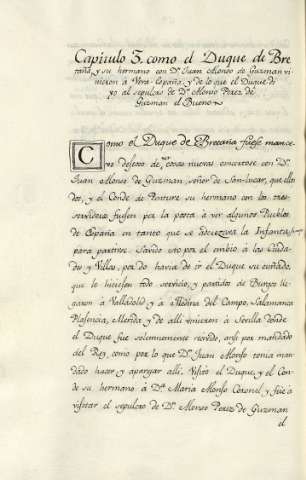 Capitulo 3. como el Duque de Bre
taña, y su hermano con Dn. Juan Alonso de Guzman vi
nieron à Vera España, y de lo que el Duque di
xo al sepulcro de Dn. Alonso Perez de
Guzman el Bueno
Como el Duque de Bretaña fuese mance
vo deseoso de ver cosas nuevas concerto con Dn.
Juan Alonso de Guzman, señor de San-lucar, que ellos
dos, y el Conde de Ponture su hermano con los tres
servidores fuesen por la posta à vér algunos Pueblos
de España en tanto que se adereza la Infanta
para partirse. Savido esto por el embió à las Ciuda
des y Villas, por do havia de ir el Duque su cuñado,
que le hiciesen todo servicio, y partidos de Burgos lle
garon à Valladolid y à Medina del Campo, Salamanca
Plasencia, Merida, y de alli vinieron à Sevilla donde
el Duque fué solemnemente recevido, ansi por mandado
del Rey, como por lo que Dn. Juan Alonso tenia man
dado hacer y aparejar alli. Visitó el Duque, y el Con
de su hermano à Dª. Maria Alonso Coronel y fué à
visitar el sepulcro de Dn. Alonso Perez de Guzman
el